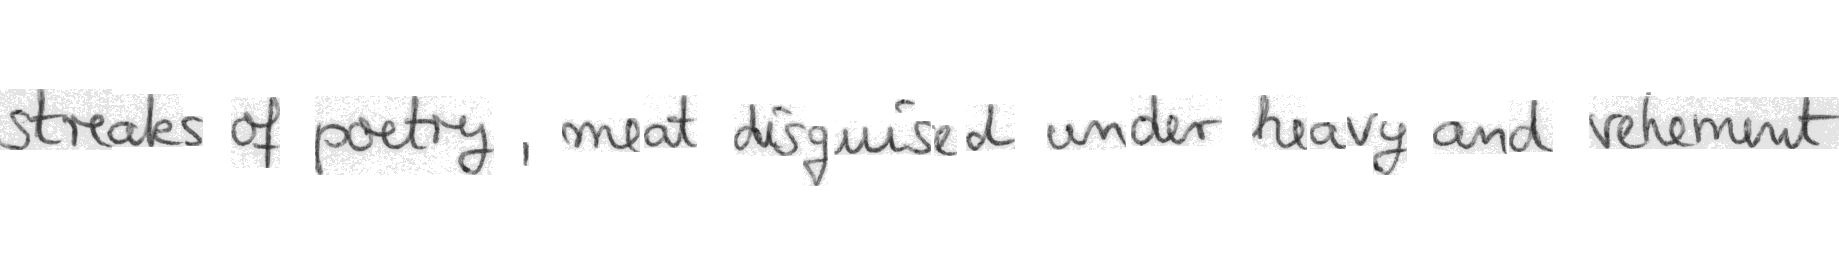 streaks of poetry , meat disguised under heavy and vehement